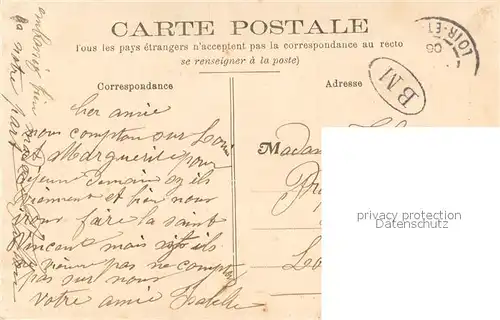 CARTE POSTALE
Tous les pays étrangers n'acceptent pas la correspondance au recto
se renseigner à la poste)
Correspondance
Adresse
LOIR-ET
06
BM
cher amie
nous compton sur Loui
et Marguerite pour
dejeuner demain si ils
viennent et bien nous
irons faire la saint
Vincent mais si ils
ne vienne pas ne compter
pas sur nous
votre amie Isabelle
embrassez bien
de notre part
Madam
privacy protection
Datenschutz